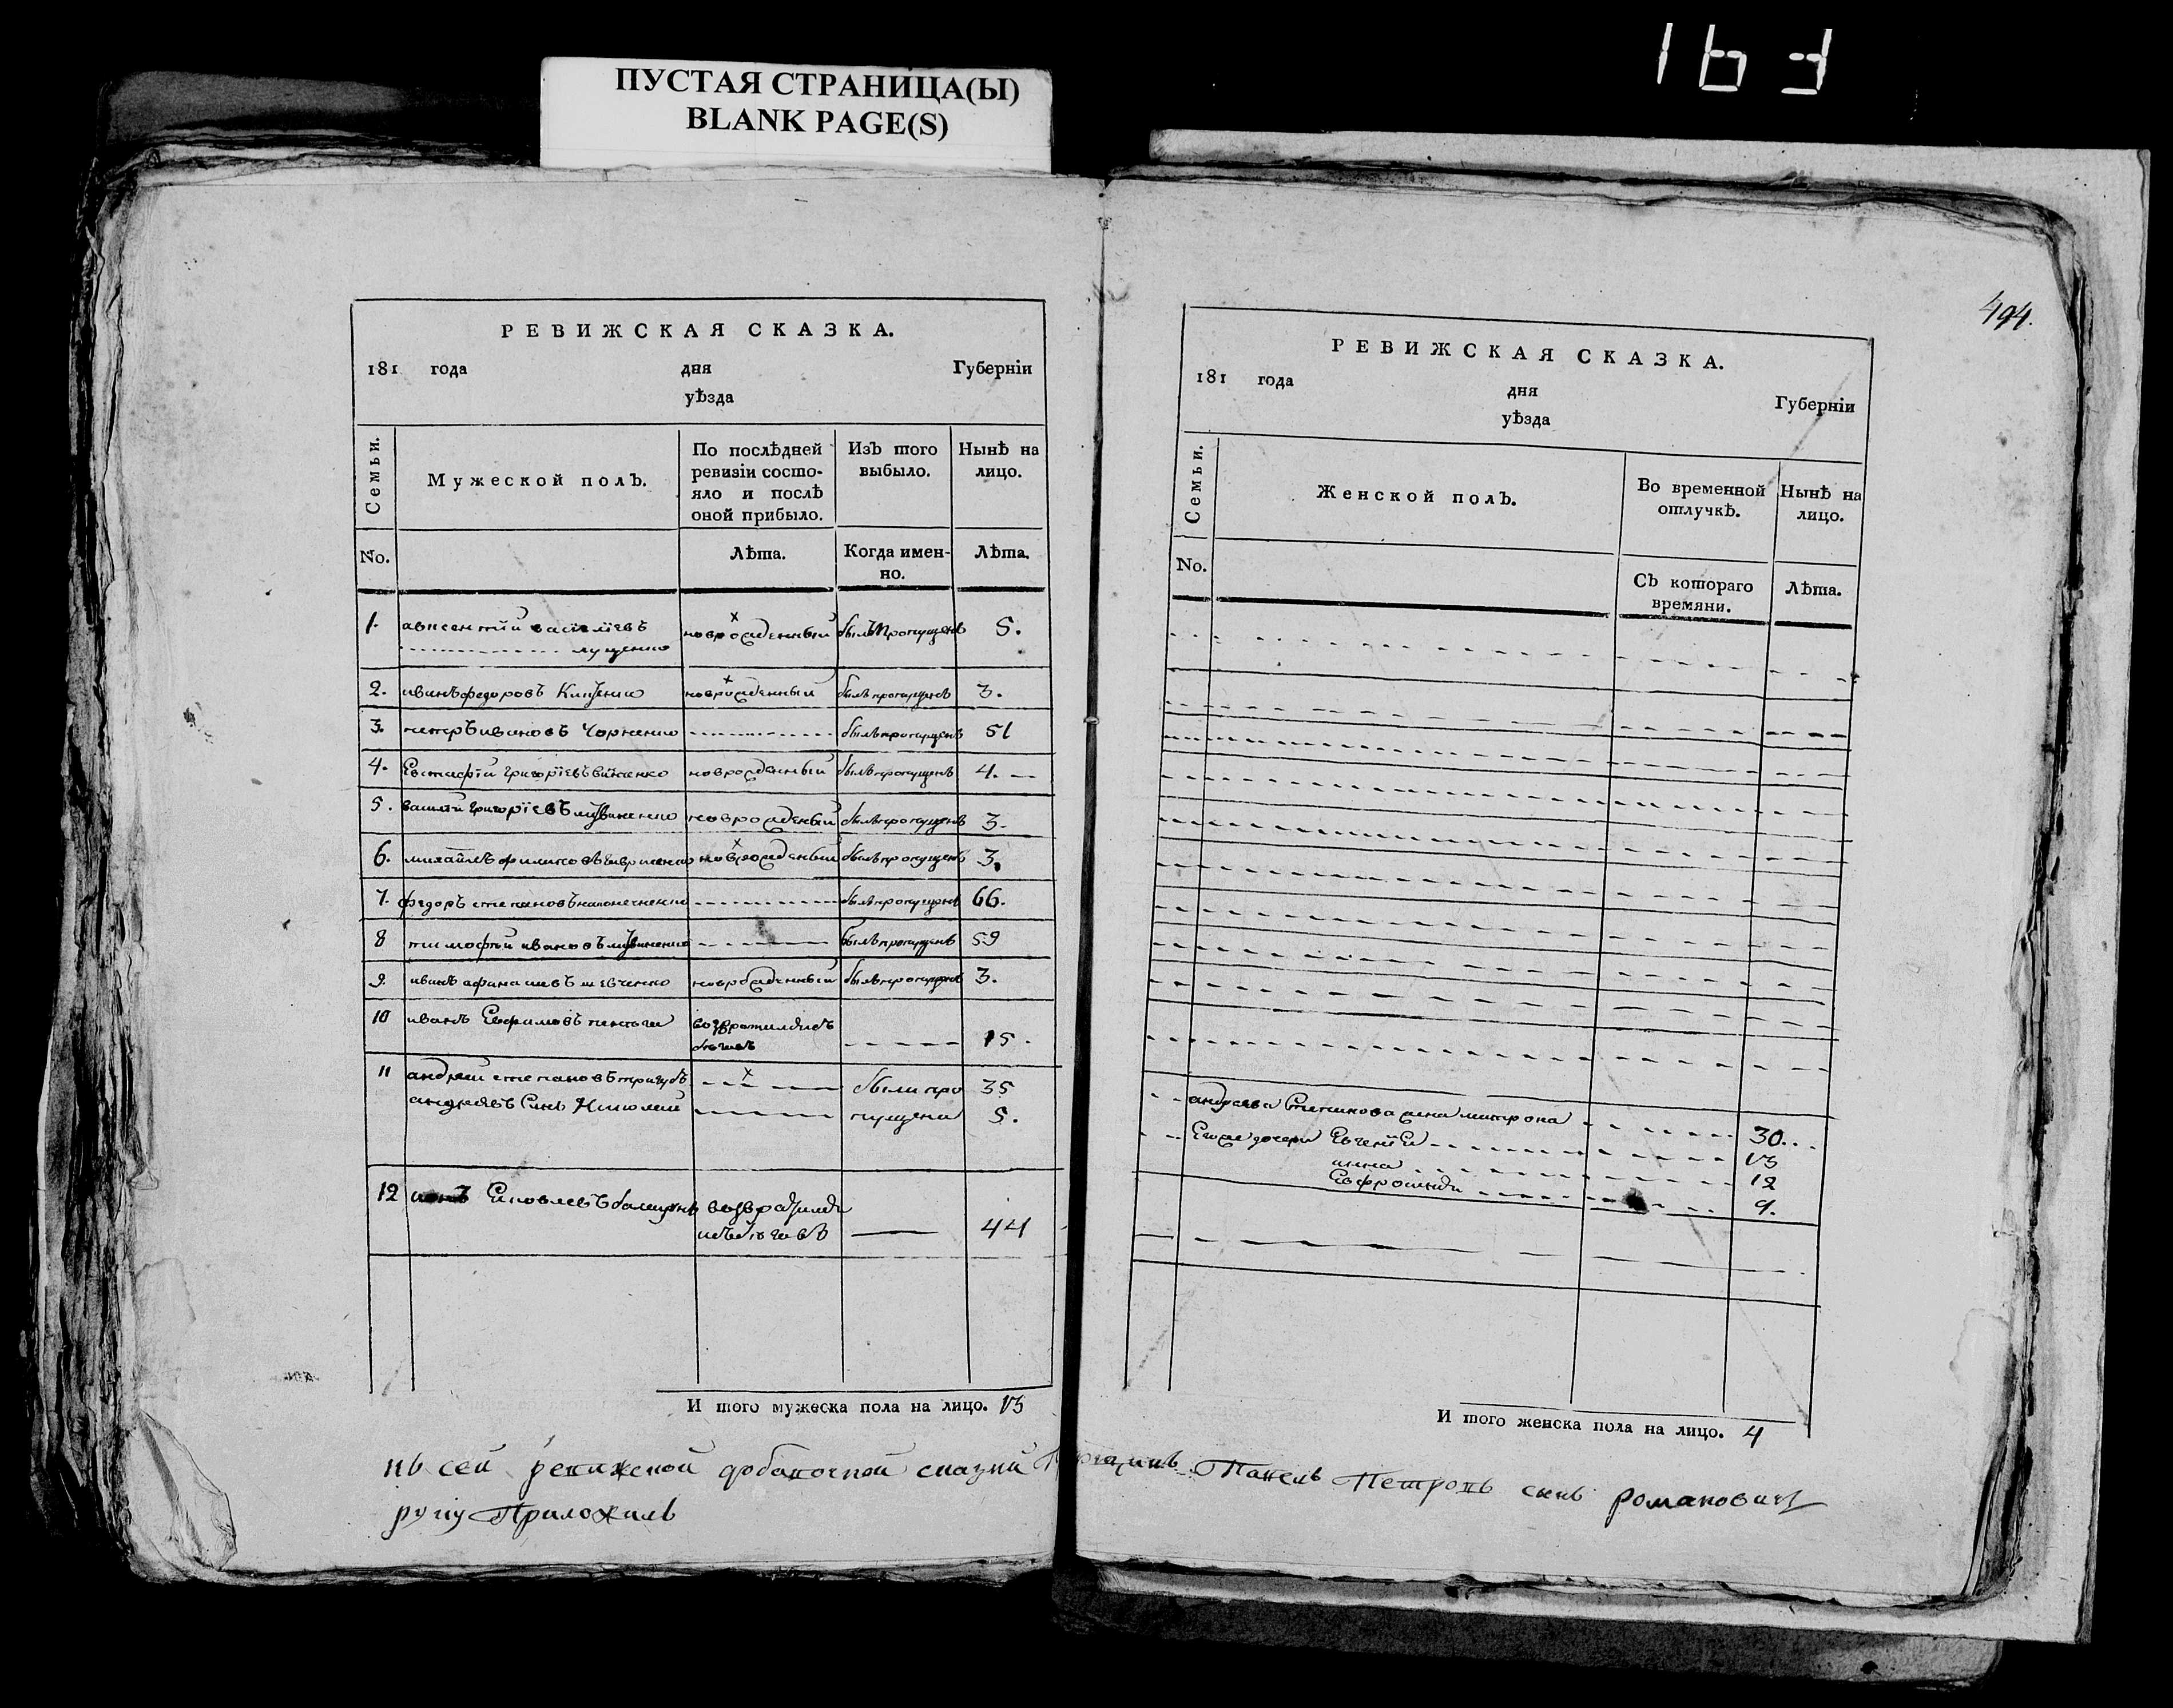 163
ПУСТАЯ СТРАНИЦА(Ы)
BLANK PAGE(S)
РЕВИЖСКАЯ СКАЗКА.
181 года дня Губерніи
уѣзда
Семьи.
Мужеской полъ.
По послѣдней ревизіи состояло и послѣ оной прибыло.
Изъ того выбыло.
Нынѣ на лицо.
No.
Лѣта.
Когда именно.
Лѣта.
1. авксентій василіевъ новрожденный былъ пропущенъ 5.
луценко
2. иванъ федоровъ новрожденный былъ пропущенъ 3.
3. петръ ивановъ Чорненко былъ пропущенъ 51
4. Евстафій григоріевъ новрожденный былъ пропущенъ 4.
5. василій григоріевъ новрожденый былъ пропущенъ 3.
6. михайлъ филиповъ новрожденый былъ пропущенъ 3.
7. федоръ степановъ былъ пропущенъ 66.
8 тимофей ивановъ былъ пропущенъ 59
9. иванъ афанасиевъ шевченко новрожденный былъ пропущенъ 3.
10 иванъ Ефимовъ возвратился
15.
11 андрей степановъ тригубъ были про 35
андреевъ Сынъ Николай пущени 5.
12 Яковлевъ возвратился
изъ бѣговъ 44
И того мужеска пола на лицо. 13
494.
РЕВИЖСКАЯ СКАЗКА.
181 года дня Губерніи
уѣзда
Семьи.
Женской полъ.
Во временной отлучкѣ.
Нынѣ на лицо.
No.
Съ котораго времяни.
Лѣта.
андреева Степанова жена матрона 30.
Егоже дочери Евгенія 13
анна 12
Ефросинія 9.
И того женска пола на лицо. 4
къ сей ревижской добавочной сказки Павелъ Петровъ сынъ романовичъ
руку Приложилъ